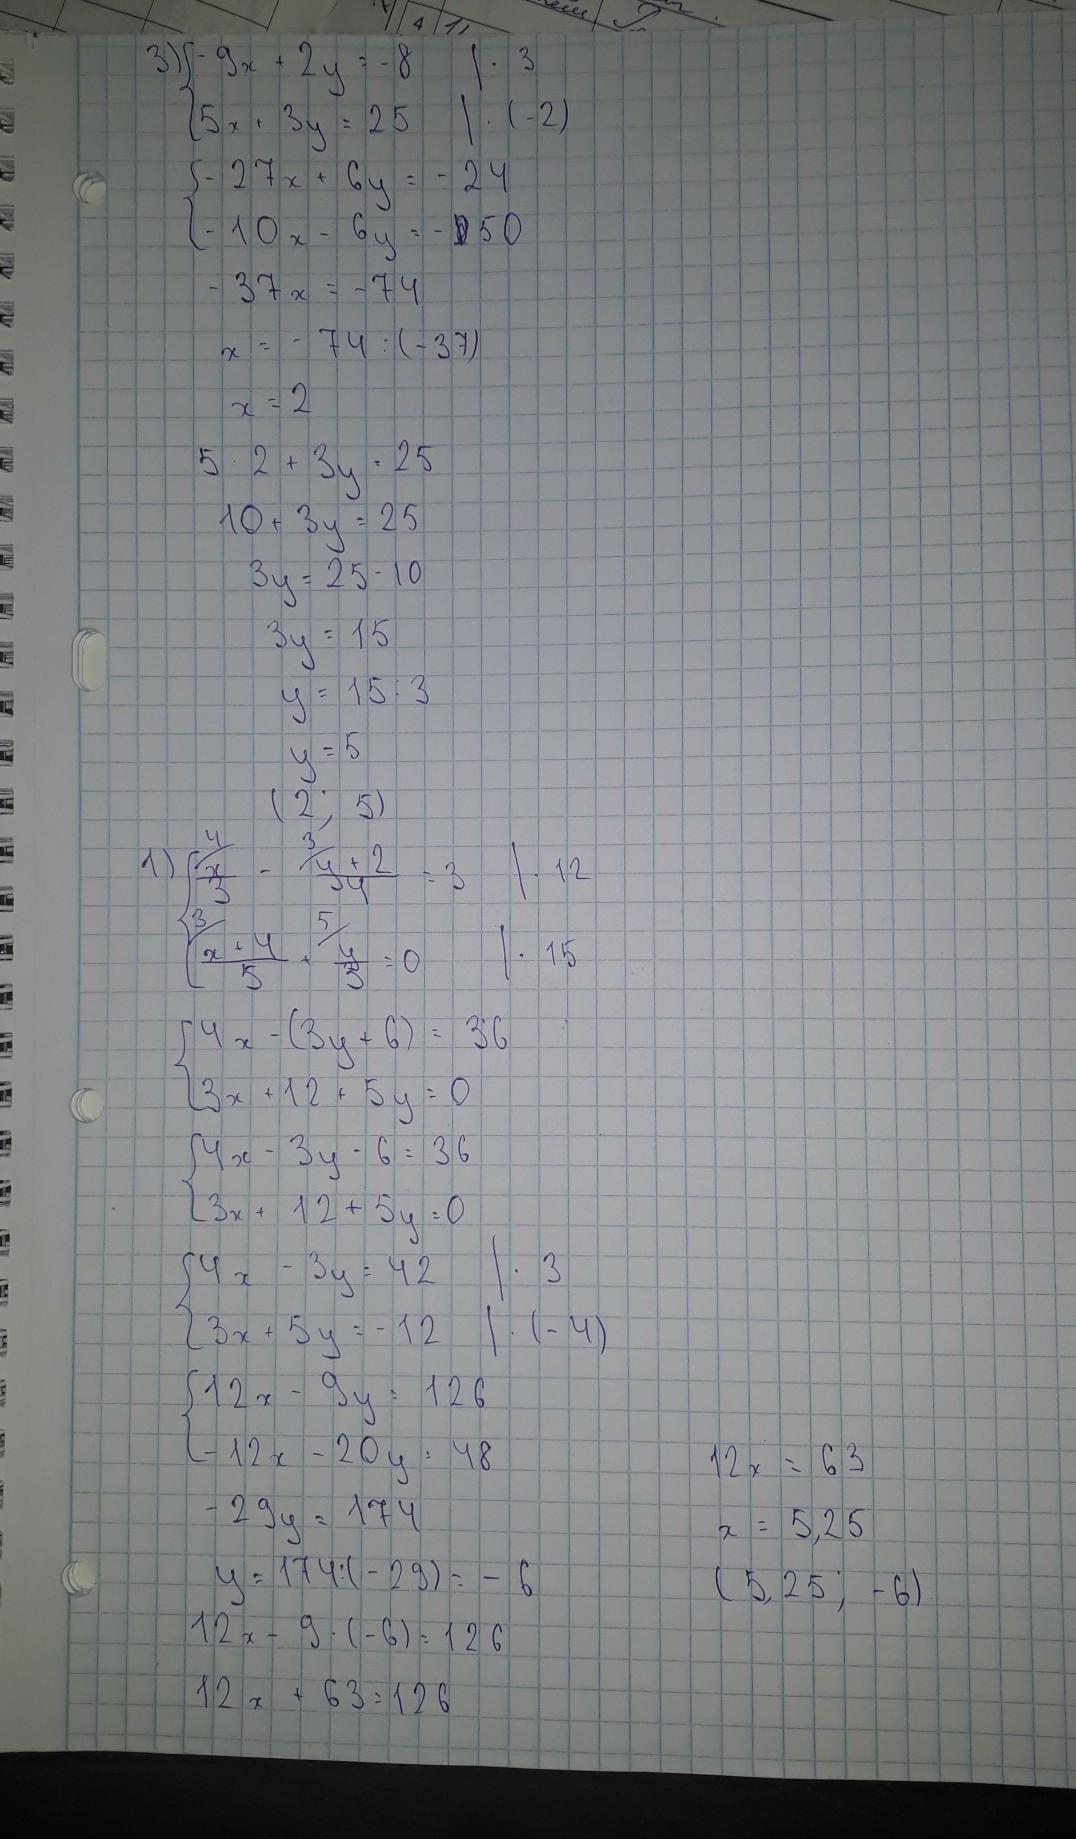 3) { -9x + 2y = -8 | · 3
5x + 3y = 25 | · (-2)
{ -27x + 6y = -24
-10x - 6y = -50
-37x = -74
x = -74 : (-37)
x = 2
5 · 2 + 3y = 25
10 + 3y = 25
3y = 25 - 10
3y = 15
y = 15 : 3
y = 5
(2; 5)
1) { 4/ x/3 - 3/ y+2/4 = 3 | · 12
3/ x+4/5 + 5/ y/3 = 0 | · 15
{ 4x - (3y + 6) = 36
3x + 12 + 5y = 0
{ 4x - 3y - 6 = 36
3x + 12 + 5y = 0
{ 4x - 3y = 42 | · 3
3x + 5y = -12 | · (-4)
{ 12x - 9y = 126
-12x - 20y = 48
-29y = 174
y = 174 : (-29) = -6
12x - 9 · (-6) = 126
12x + 63 = 126
12x = 63
x = 5,25
(5,25; -6)